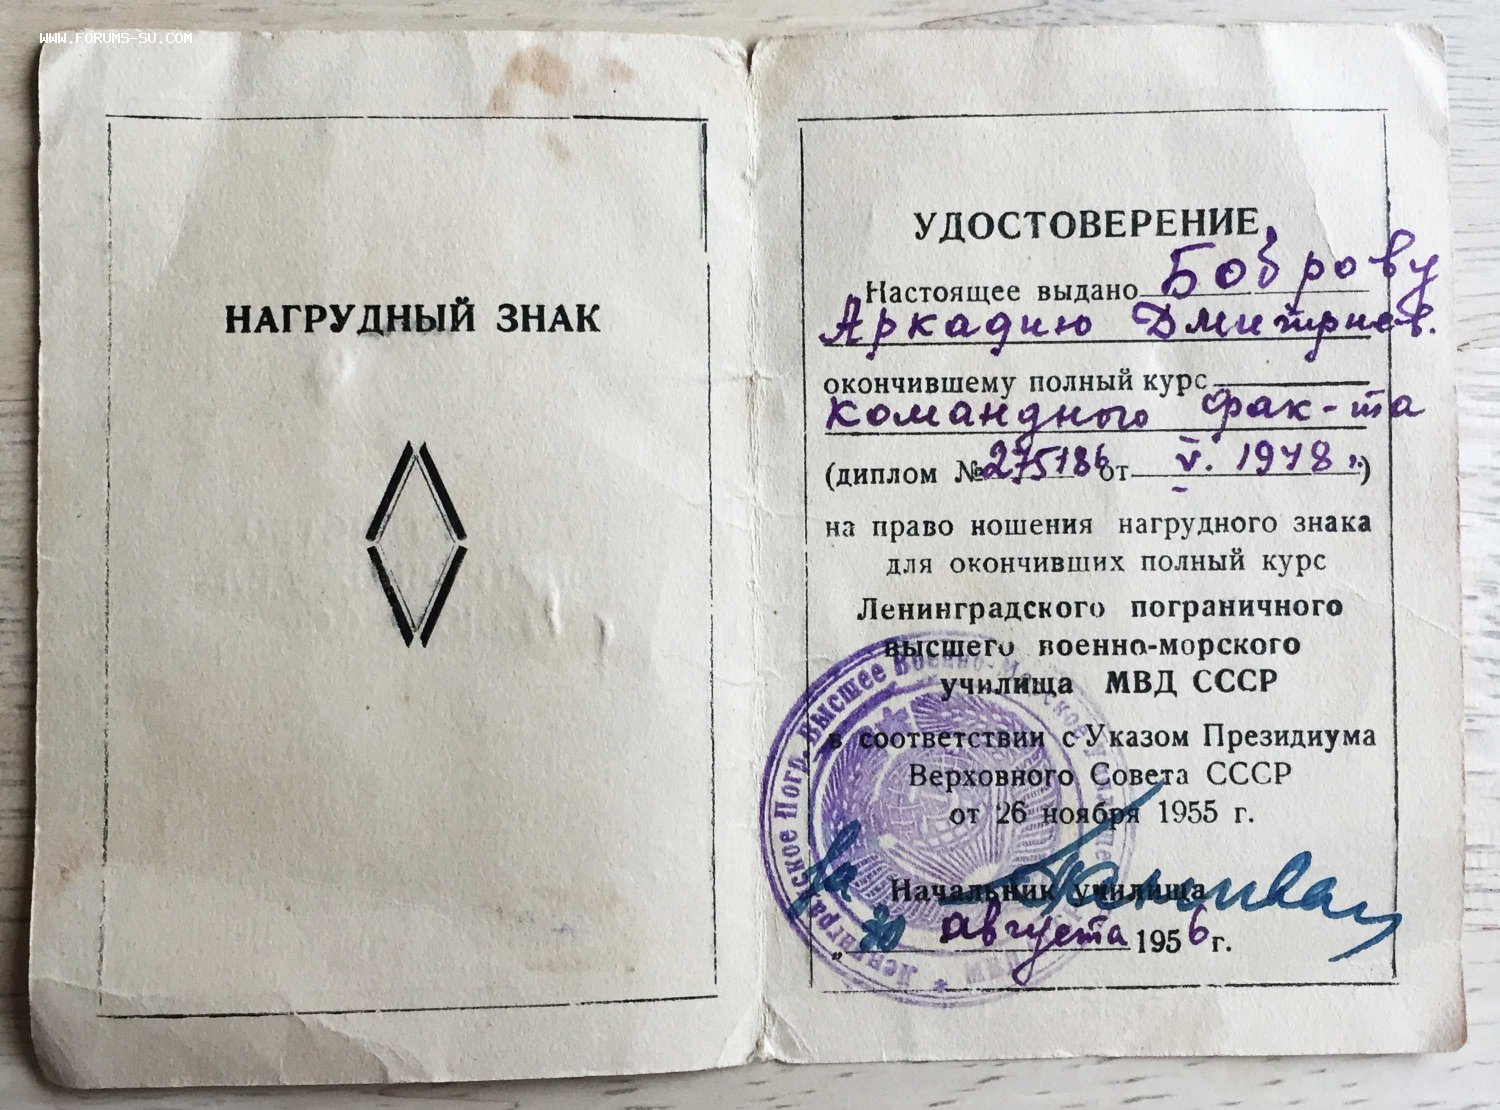 WWW.FORUMS-SU.COM
НАГРУДНЫЙ ЗНАК
УДОСТОВЕРЕНИЕ
Настоящее выдано Боброву
Аркадию Дмитриев.
окончившему полный курс
командного фак-та
(диплом № 275186 от V. 1948 г.)
на право ношения нагрудного знака
для окончивших полный курс
Ленинградского пограничного
высшего военно-морского
училища МВД СССР
в соответствии с Указом Президиума
Верховного Совета СССР
от 26 ноября 1955 г.
За Начальник училища
„30 августа 1956 г.
Ленинградское Погр. Высшее Военно-Морское училище